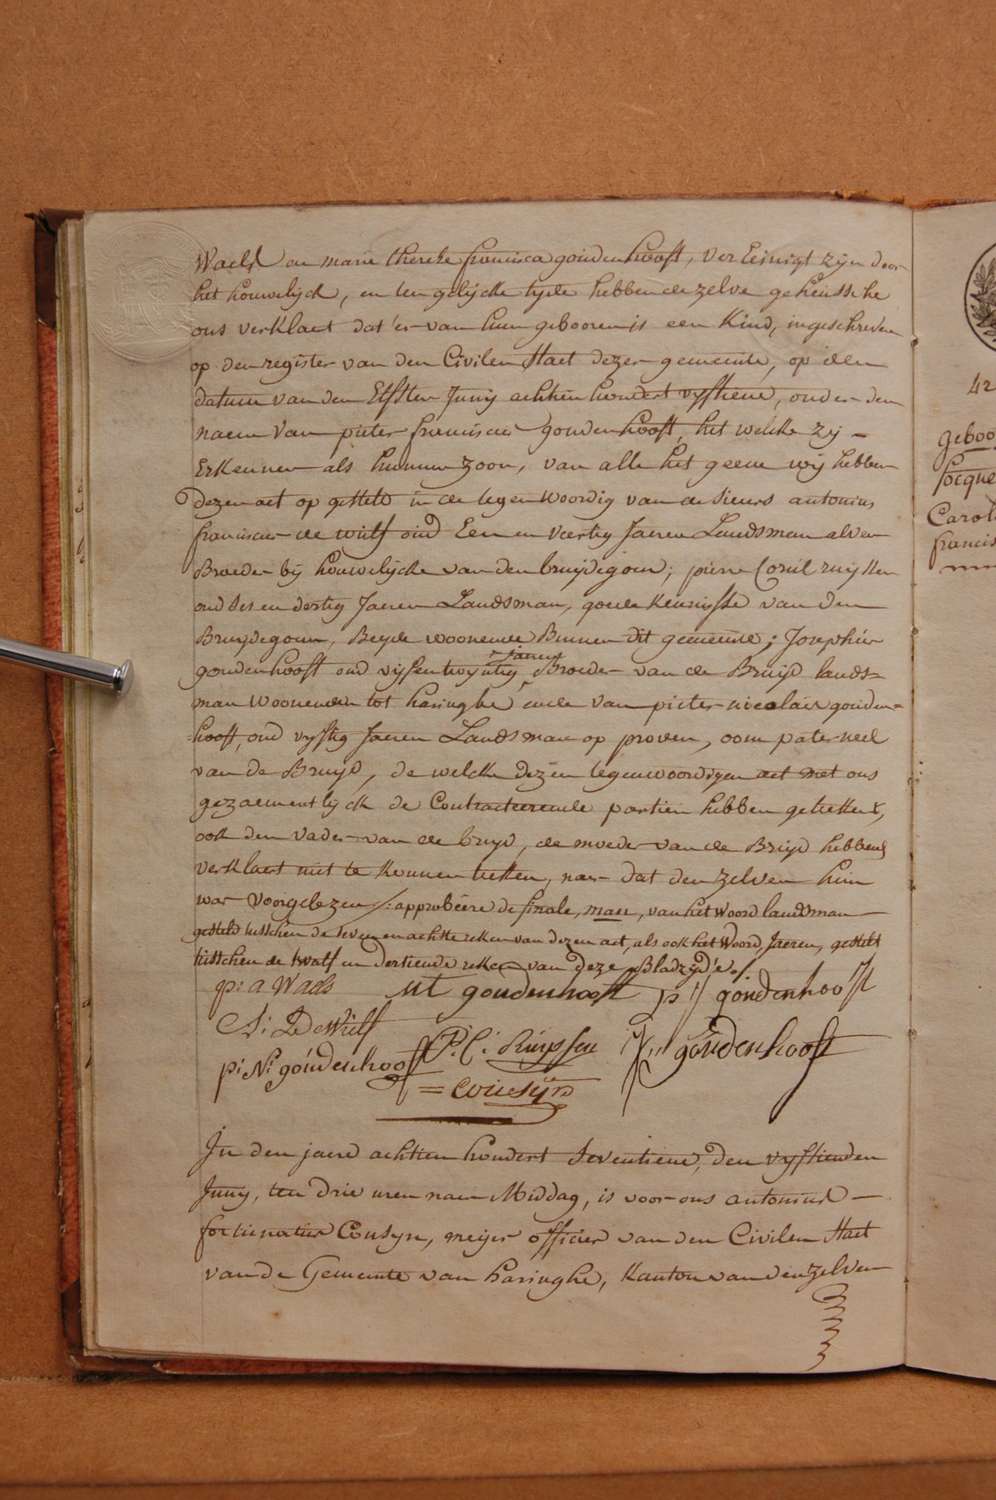 Waels en marie therese francisca goudenhooft, vereenigt zijn door
het houwelijck, en ten gelijcke tyde hebben de zelve
ons verklaert dat'er van hun gebooren is een Kind, ingeschreven
op den register van den Civilen Staet dezer gemeente, op den
datum van den Elfsten Junij achtien hondert vyfthiene, onder den
naem van pieter franciscus goudenhooft, het welke zij -
Erkennen als hunnen zoon, van alle het geene wij hebben
dezen act op gestelt in de tegenwoordig van de sieurs antonius
franciscus de wulf oud Een en veertig Jaeren Landsman alver
Broeder bij houwelijcke van den bruijdegom; pierre Cornil ruijssen
oud ses en dertig Jaeren Landsman, goede Kennisse van den
Bruijdegom, Beyde woonende Binnen dit gemeente; Josephus
goudenhooft oud vijfentwyntig Jaeren Broeder van de Bruijd lands=
man Woonende tot haringhe ende van pieter nicolais gouden=
hooft, oud vyftig Jaeren Landsman op proven, oom paterneel
van de Bruijd, de welcke dezen tegenwoordigen act met ons
gezaementlijck de Contracteerende partien hebben geteekent,
ook den vader van de bruyd, de moeder van de Bruijd hebbende
verklaert niet te Konnen teeken, naer dat den zelven hun
was voorgelezen /: approbeere de finale, man, van het woord landsman
gesteld tusschen de seven en achtste reken van dezen act, als ook het Woord Jaeren, gestelt
tusschen de twalf en dertiende reken van deze Bladzyd'e./
p: a Waels   MT goudenhooft   p: J goudenhooft
A: F: De Wulf   P: C: Ruijssen   J: goudenhooft
p: N: goudenhooft
= Cousijn
In den jaere achtien hondert seventiene, den vyfthienden
Junij, ten drie uren naer Middag, is voor ons antonius -
fortunatus Cousyn, meijer officier van den Civilen Staet
van de Gemeente van haringhe, Kanton van den zelven
42
geboo
Caroli
francis